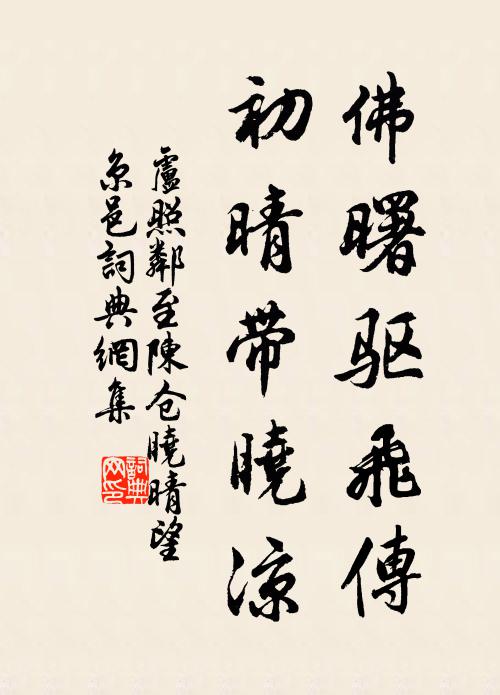 佛曙驱飛傳
初晴带曉涼
盧照鄰至陳仓曉晴望
京邑詞典網集
詞典网印